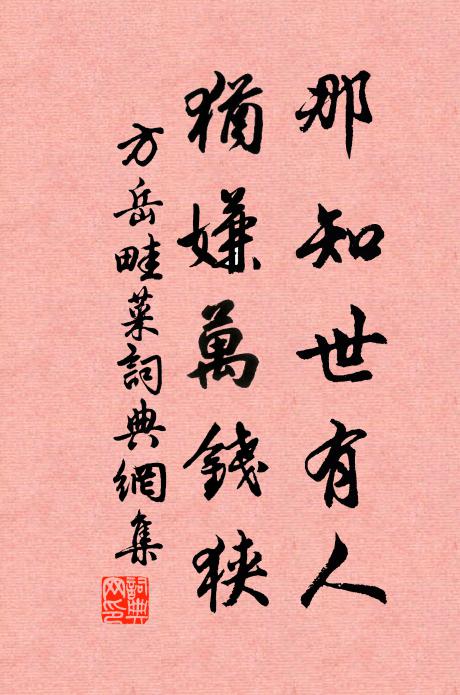 那知世有人
猶嫌萬錢狹
方岳畦菜詞典網集
詞典網印